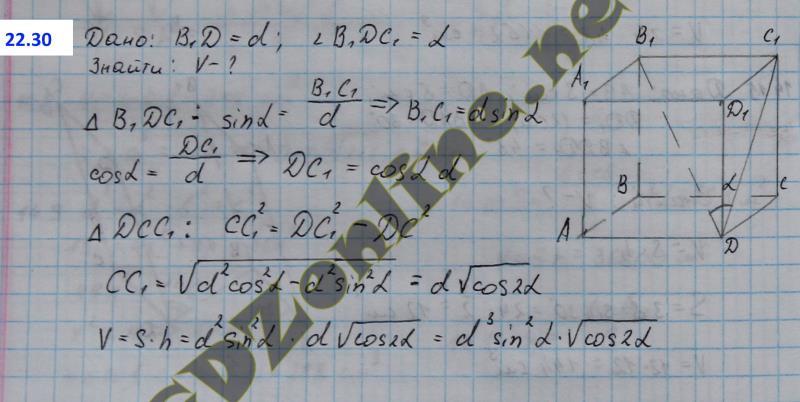 22.30
Дано: B₁D = d; ∠B₁DC₁ = α
Знайти: V - ?
Δ B₁DC₁: sinα = B₁C₁/d => B₁C₁ = d sinα
cosα = DC₁/d => DC₁ = cosα d
Δ DCC₁: CC₁² = DC₁² - DC²
CC₁ = √(d²cos²α - d²sin²α) = d√cos2α
V = S·h = d²sin²α · d√cos2α = d³sin²α · √cos2α
B₁ C₁
A₁ D₁
B α C
A D
GDZonline.net